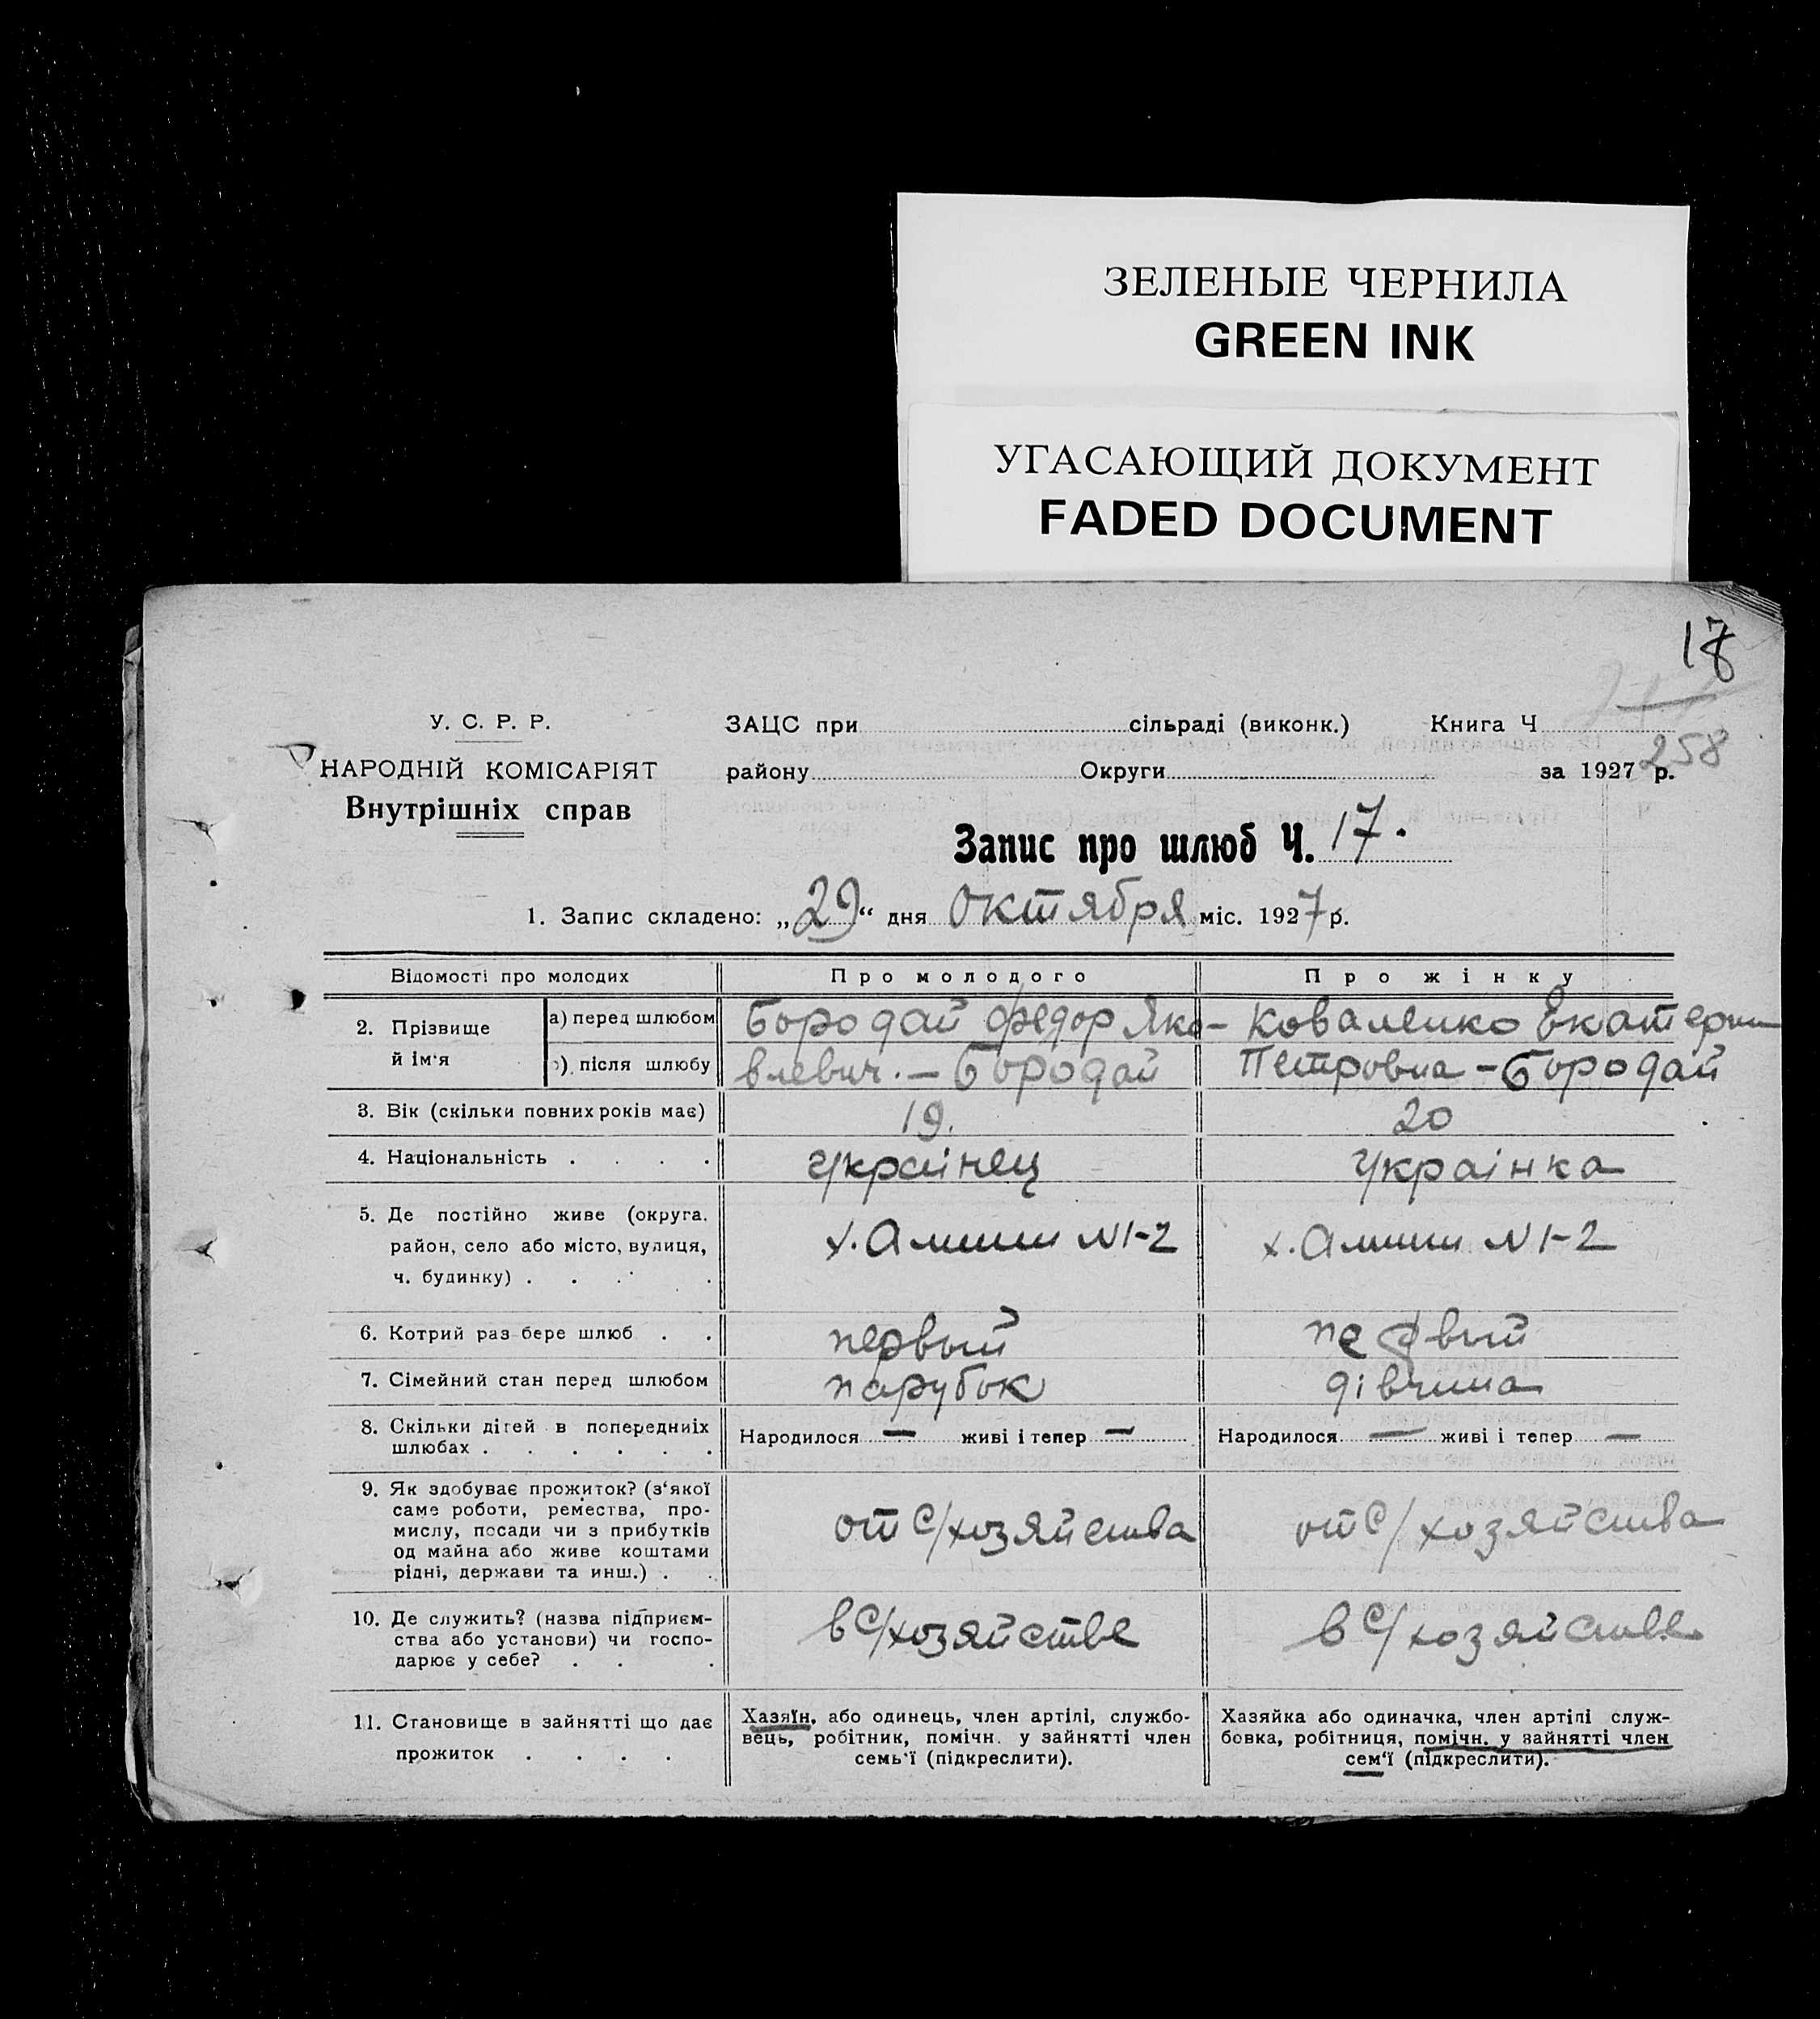 ЗЕЛЕНЫЕ ЧЕРНИЛА
GREEN INK
УГАСАЮЩИЙ ДОКУМЕНТ
FADED DOCUMENT
У. С. Р. Р.
НАРОДНІЙ КОМІСАРІЯТ
Внутрішніх справ
ЗАЦС при сільраді (виконк.) Книга Ч
258
району Округи за 1927 р.
Запис про шлюб Ч. 17.
1. Запис складено: „29“ дня Октября міс. 1927 р.
Відомості про молодих
Про молодого
Про жінку
2. Прізвище й ім'я
а) перед шлюбом
Бородай Федор Яко-
Коваленко Екатерин
після шлюбу
влевич. — Бородай
Петровна — Бородай
3. Вік (скільки повних років має)
19.
20
4. Національність . . . .
Українець
Українка
5. Де постійно живе (округа,
район, село або місто, вулиця,
ч. будинку) . . . .
х. N1-2
х. N1-2
6. Котрий раз бере шлюб . .
первый
первый
7. Сімейний стан перед шлюбом
парубок
дівчина
8. Скільки дітей в попередніїх
шлюбах . . . . . .
Народилося — живі і тепер —
Народилося — живі і тепер —
9. Як здобуває прожиток? (з'якої
саме роботи, ремества, про-
мислу, посади чи з прибутків
од майна або живе коштами
рідні, держави та инш.) . .
от С/хозяйства
от С/хозяйства
10. Де служить? (назва підприєм-
ства або установи) чи госпо-
дарює у себе? . . .
в С/хозяйстве
в С/хозяйстве
11. Становище в зайнятті що дає
прожиток . . . .
Хазяїн, або одинець, член артілі, службо-
вець, робітник, помічн. у зайнятті член
семь'ї (підкреслити).
Хазяйка або одиначка, член артілі служ-
бовка, робітниця, помічн. у зайнятті член
сем'ї (підкреслити).